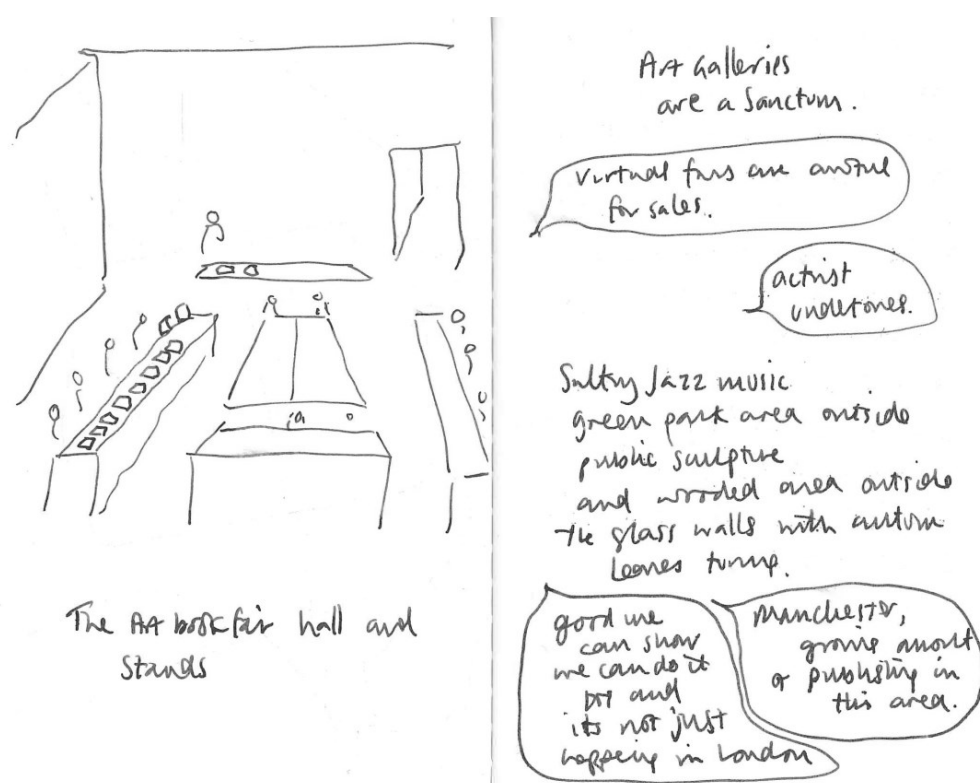 The Art book fair hall and
stands
Art Galleries
are a Sanctum.
Virtual fairs are awful
for sales.
activist
undertones.
Sultry Jazz music
green park area outside
public sculpture
and wooded area outside
the glass walls with autumn
leaves turning.
good we
can show
we can do it
and
its not just
happening in London
Manchester,
growing amount
of publishing in
this area.